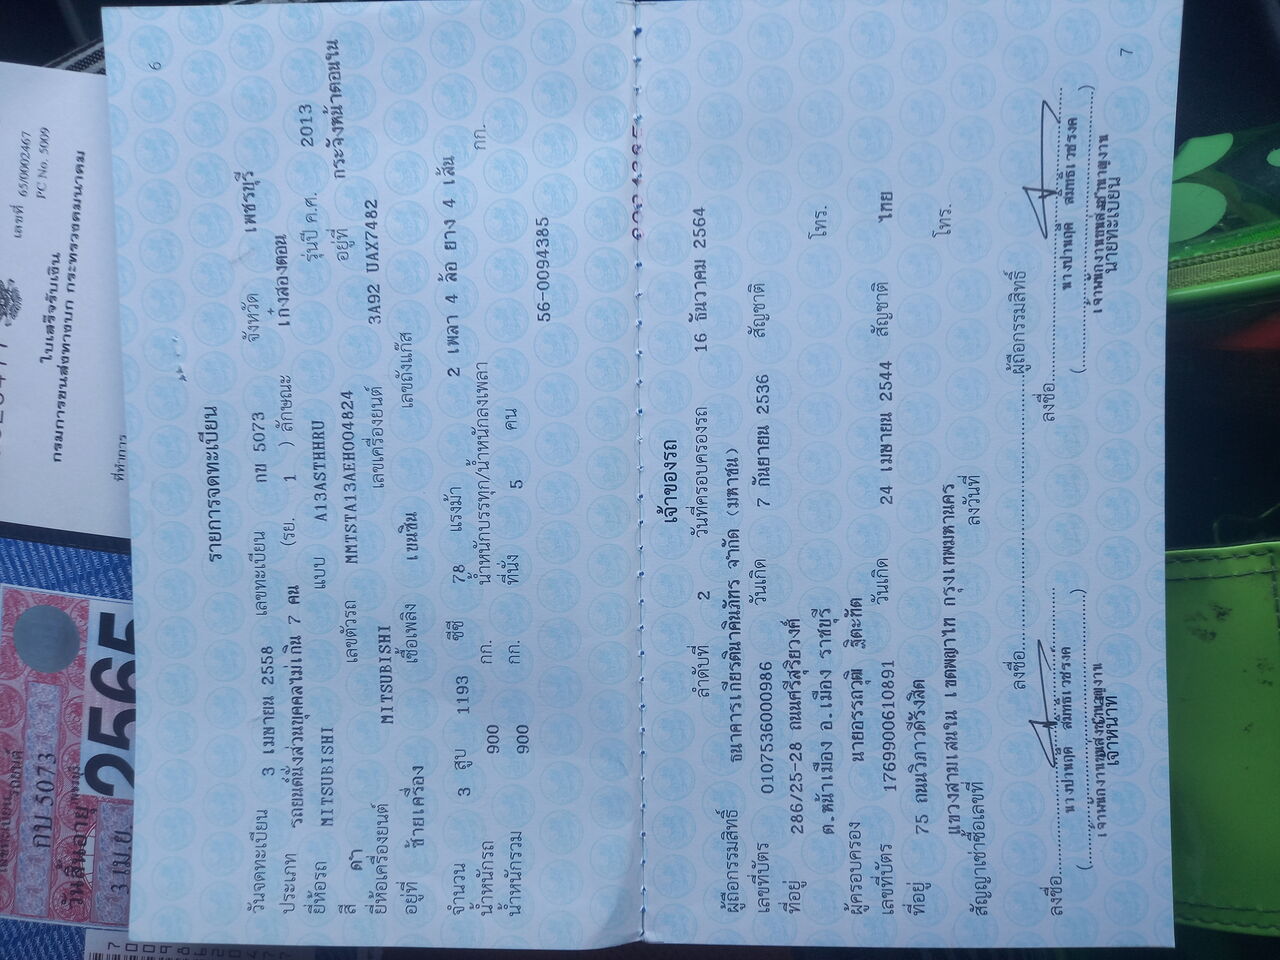 6
รายการจดทะเบียน
วันจดทะเบียน 3 เมษายน 2558 เลขทะเบียน กข 5073 จังหวัด เพชรบุรี
ประเภท รถยนต์นั่งส่วนบุคคลไม่เกิน 7 คน (รย. 1 ) ลักษณะ เก๋งสองตอน
ยี่ห้อรถ MITSUBISHI แบบ A13ASTHHRU รุ่นปี ค.ศ. 2013
สี ดำ เลขตัวรถ MMTSTA13AEH004824 อยู่ที่ กระจังหน้าตอนใน
ยี่ห้อเครื่องยนต์ MITSUBISHI เลขเครื่องยนต์ 3A92 UAX7482
อยู่ที่ ซ้ายเครื่อง เชื้อเพลิง เบนซิน เลขถังแก๊ส
จำนวน 3 สูบ 1193 ซีซี 78 แรงม้า 2 เพลา 4 ล้อ ยาง 4 เส้น
น้ำหนักรถ 900 กก. น้ำหนักบรรทุก/น้ำหนักลงเพลา กก.
น้ำหนักรวม 900 กก. ที่นั่ง 5 คน
56-0094385
เจ้าของรถ
ลำดับที่ 2 วันที่ครอบครองรถ 16 ธันวาคม 2564
ผู้ถือกรรมสิทธิ์ ธนาคารเกียรตินาคินภัทร จำกัด (มหาชน)
เลขที่บัตร 0107536000986 วันเกิด 7 กันยายน 2536 สัญชาติ
ที่อยู่ 286/25-28 ถนนศรีสุริยวงศ์
ต.หน้าเมือง อ.เมือง ราชบุรี โทร.
ผู้ครอบครอง นายอรรถวุฒิ
เลขที่บัตร 1769900610891 วันเกิด 24 เมษายน 2544 สัญชาติ ไทย
ที่อยู่ 75 ถนนวิภาวดีรังสิต
แขวงสามเสนใน เขตพญาไท กรุงเทพมหานคร โทร.
สัญญาเช่าซื้อเลขที่ ลงวันที่
ลงชื่อ ผู้ถือกรรมสิทธิ์
ลงชื่อ ลงชื่อ
เจ้าหน้าที่ นายทะเบียน
7
เลขที่ 65/0002467
PC No. 5009
ใบเสร็จรับเงิน
กรมการขนส่งทางบก กระทรวงคมนาคม
ที่ทำการ
กบ 5073
วันสิ้นอายุ
3 เม.ย. 2565